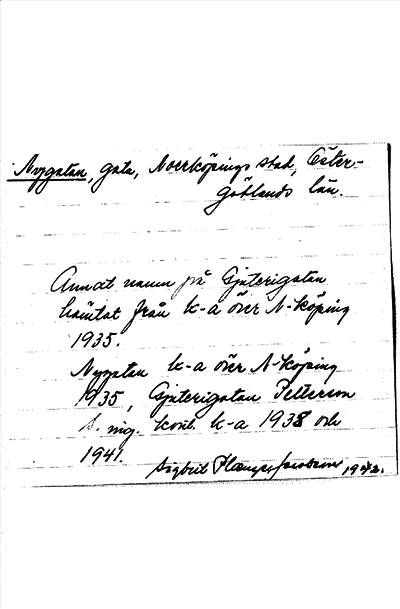 Nygatan, gata, Norrköpings stad, Öster-
götlands län.
Annat namn på Gjuterigatan
hämtat från k-a över N-köping
1935.
Nygatan k-a över N-köping
1935, Gjuterigatan Petterson
s. ing. kont. k-a 1938 och
1941.
Sigbrit 1942.